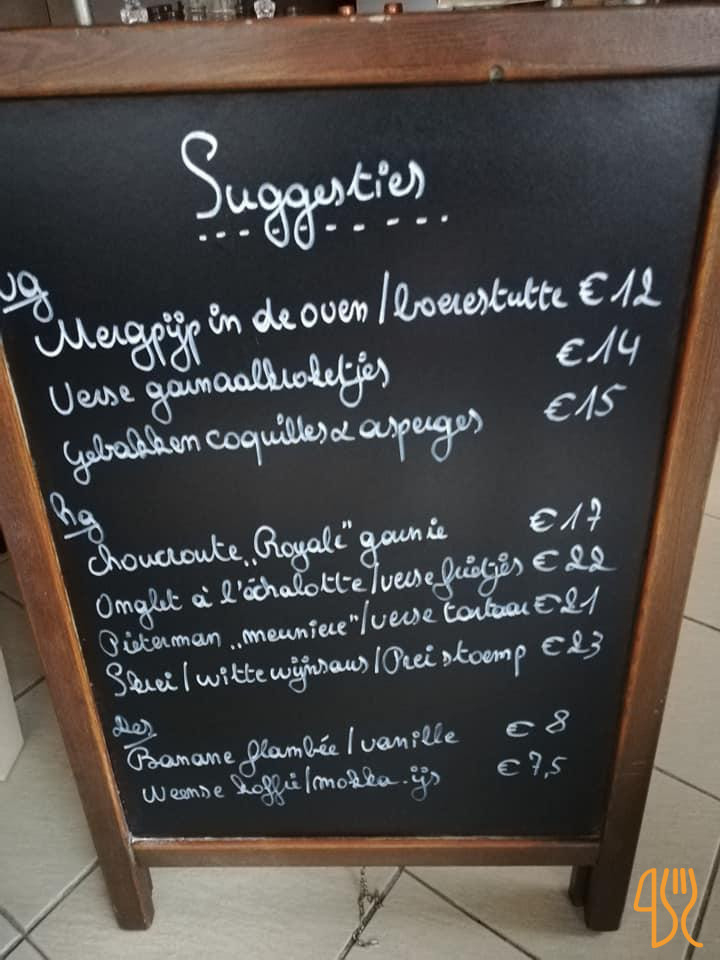 Suggesties
vg
Mergpijp in de oven / boerestutte € 12
Verse garnaalkroketjes € 14
Gebakken coquilles & asperges € 15
hg
Choucroute „Royale" garnie € 17
Onglet à l'échalotte / verse frietjes € 22
Pieterman „meuniere" / verse tartaar € 21
Skrei / witte wijnsaus / Prei stoemp € 23
des
Banane flambée / vanille € 8
Weense koffie / mokka ijs € 7,5